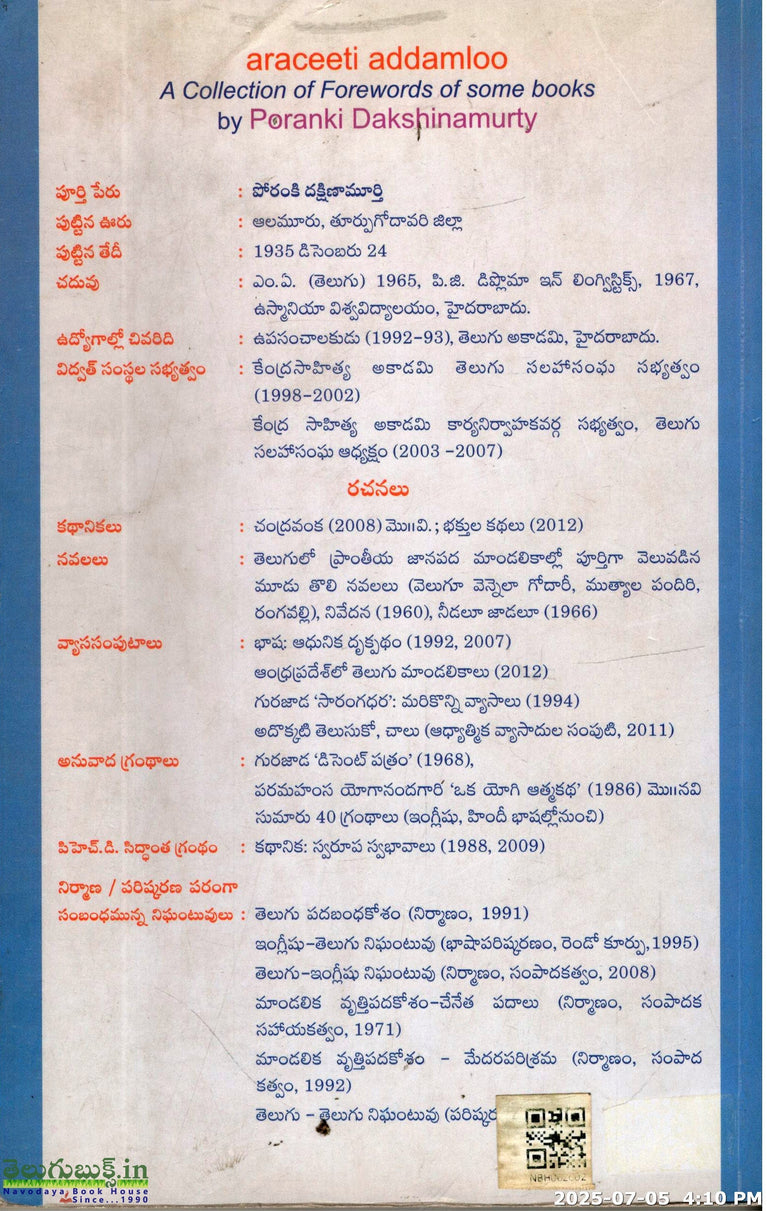 araceeti addamloo
A Collection of Forewords of some books
by Poranki Dakshinamurty
పూర్తి పేరు : పోరంకి దక్షిణామూర్తి
పుట్టిన ఊరు : ఆలమూరు, తూర్పుగోదావరి జిల్లా
పుట్టిన తేదీ : 1935 డిసెంబరు 24
చదువు : ఎం.ఏ. (తెలుగు) 1965, పి.జి. డిప్లొమా ఇన్ లింగ్విస్టిక్స్, 1967,
ఉస్మానియా విశ్వవిద్యాలయం, హైదరాబాదు.
ఉద్యోగాల్లో చివరిది : ఉపసంచాలకుడు (1992-93), తెలుగు అకాడమి, హైదరాబాదు.
విద్వత్ సంస్థల సభ్యత్వం : కేంద్రసాహిత్య అకాడమి తెలుగు సలహాసంఘ సభ్యత్వం
(1998-2002)
కేంద్ర సాహిత్య అకాడమి కార్యనిర్వాహకవర్గ సభ్యత్వం, తెలుగు
సలహాసంఘ ఆధ్యక్షం (2003 -2007)
రచనలు
కథానికలు : చంద్రవంక (2008) మొ॥వి. ; భక్తుల కథలు (2012)
నవలలు : తెలుగులో ప్రాంతీయ జానపద మాండలికాల్లో పూర్తిగా వెలువడిన
మూడు తొలి నవలలు (వెలుగూ వెన్నెలా గోదారీ, ముత్యాల పందిరి,
రంగవల్లి), నివేదన (1960), నీడలూ జాడలూ (1966)
వ్యాససంపుటాలు : భాష: ఆధునిక దృక్పథం (1992, 2007)
ఆంధ్రప్రదేశ్‌లో తెలుగు మాండలికాలు (2012)
గురజాడ 'సారంగధర': మరికొన్ని వ్యాసాలు (1994)
అదొక్కటి తెలుసుకో, చాలు (ఆధ్యాత్మిక వ్యాసాదుల సంపుటి, 2011)
అనువాద గ్రంథాలు : గురజాడ 'డిసెంట్ పత్రం' (1968),
పరమహంస యోగానందగారి 'ఒక యోగి ఆత్మకథ' (1986) మొ॥నవి
సుమారు 40 గ్రంథాలు (ఇంగ్లీషు, హిందీ భాషల్లోనుంచి)
పిహెచ్.డి. సిద్ధాంత గ్రంథం : కథానిక: స్వరూప స్వభావాలు (1988, 2009)
నిర్మాణ / పరిష్కరణ పరంగా
సంబంధమున్న నిఘంటువులు : తెలుగు పదబంధకోశం (నిర్మాణం, 1991)
ఇంగ్లీషు-తెలుగు నిఘంటువు (భాషాపరిష్కరణం, రెండో కూర్పు,1995)
తెలుగు-ఇంగ్లీషు నిఘంటువు (నిర్మాణం, సంపాదకత్వం, 2008)
మాండలిక వృత్తిపదకోశం-చేనేత పదాలు (నిర్మాణం, సంపాదక
సహాయకత్వం, 1971)
మాండలిక వృత్తిపదకోశం - మేదరపరిశ్రమ (నిర్మాణం, సంపాద
కత్వం, 1992)
తెలుగు - తెలుగు నిఘంటువు (పరిష్కర
తెలుగుబుక్స్.in
Navodaya Book House
Since...1990
2025-07-05 4:10 PM